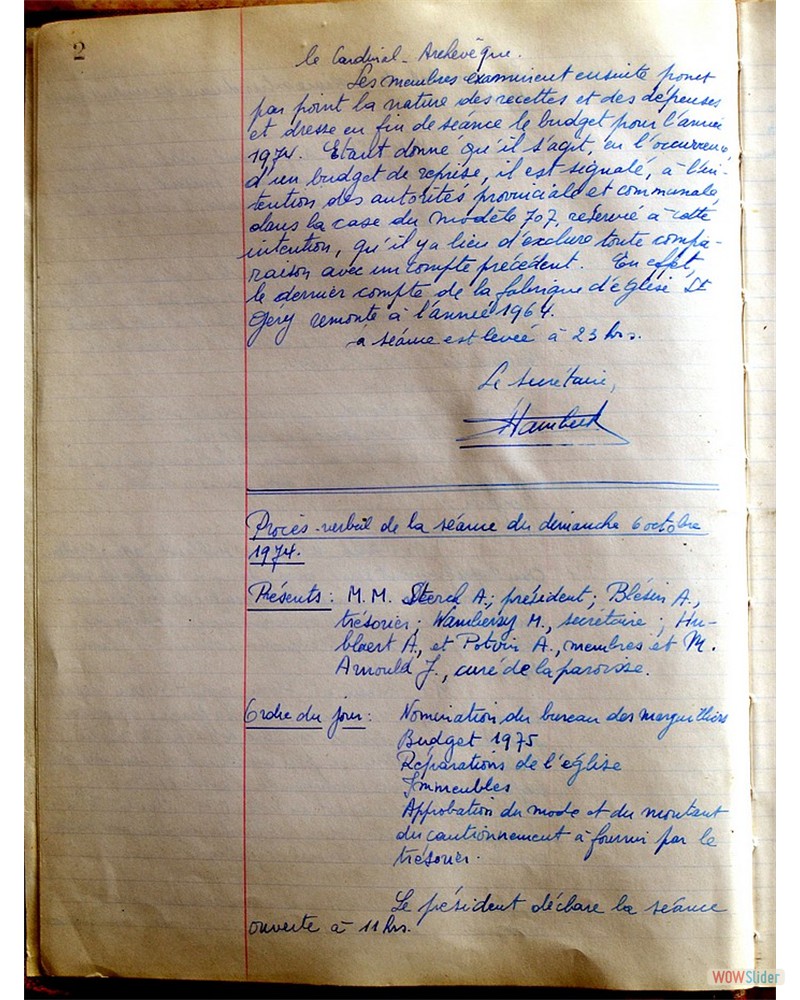 2
le Cardinal-Archevêque.
Les membres examinent ensuite point
par point la nature des recettes et des dépenses
et dresse en fin de séance le budget pour l'année
1974. Etant donné qu'il s'agit, en l'occurrence,
d'un budget de reprise, il est signalé, à l'in-
tention des autorités provinciale et communale,
dans la case du modèle 707, réservée à cette
intention, qu'il y a lieu d'exclure toute compa-
raison avec un compte précédent. En effet,
le dernier compte de la fabrique d'église St
Géry remonte à l'année 1964.
La séance est levée à 23 hrs.
Le secrétaire,
Procès-verbal de la séance du dimanche 6 octobre
1974.
Présents : M.M. Sterck A., président ; Blésin A.,
trésorier ; Wambersy M., secrétaire ; Hu-
blaert A., et Potvin A., membres et M.
Arnould J., curé de la paroisse.
Ordre du jour : Nomination du bureau des marguilliers
Budget 1975
Réparations de l'église
Immeubles
Approbation du mode et du montant
du cautionnement à fournir par le
trésorier.
Le président déclare la séance
ouverte à 11 hrs.
WOWSlider